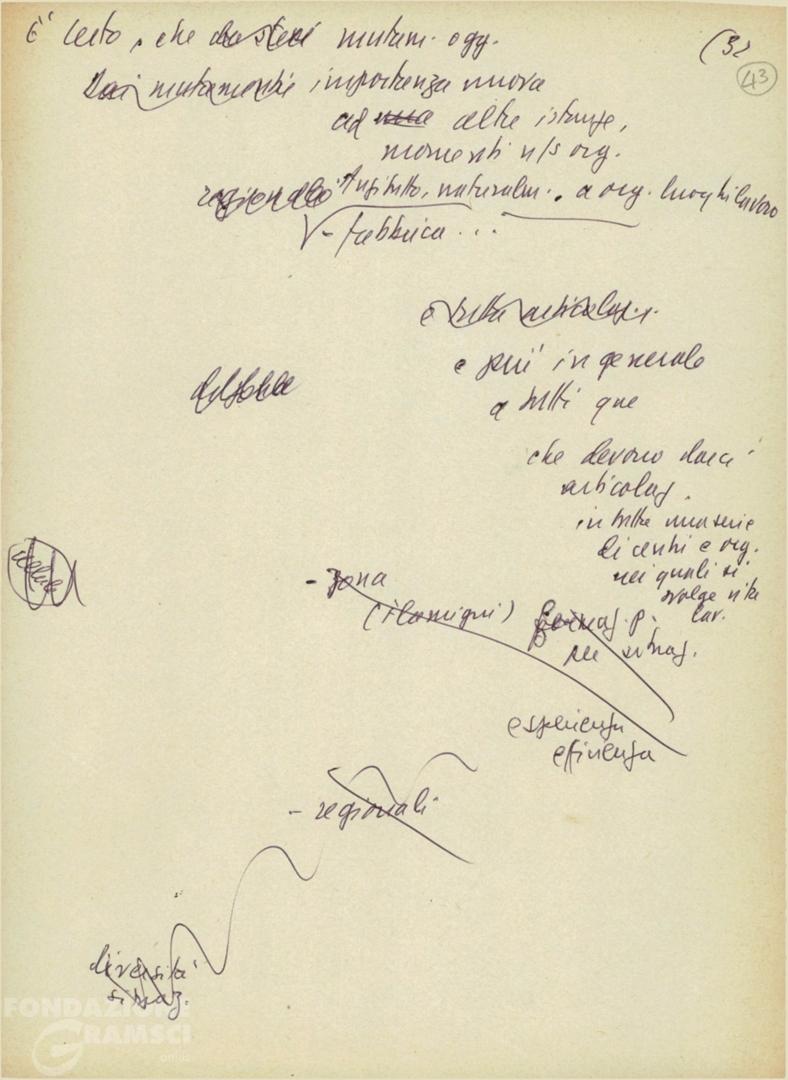 E' certo, che da stessi mutam. ogg.
(3)
43
Dai mutamenti importanza nuova
ad una altre istanze,
momenti n/s org.
regionale Anzitutto, naturalm. a org. luoghi lavoro
- fabbrica ...
e tutta articolaz.
e più in generale
a tutti que
che devono darci
articolaz.
in tutta una serie
di centri e org.
nei quali si
svolge vita
lav.
- zona
(i comizi) p.
per situaz.
esperienza
efficienza
- regionali
diversità
situaz.
FONDAZIONE
GRAMSCI
onlus